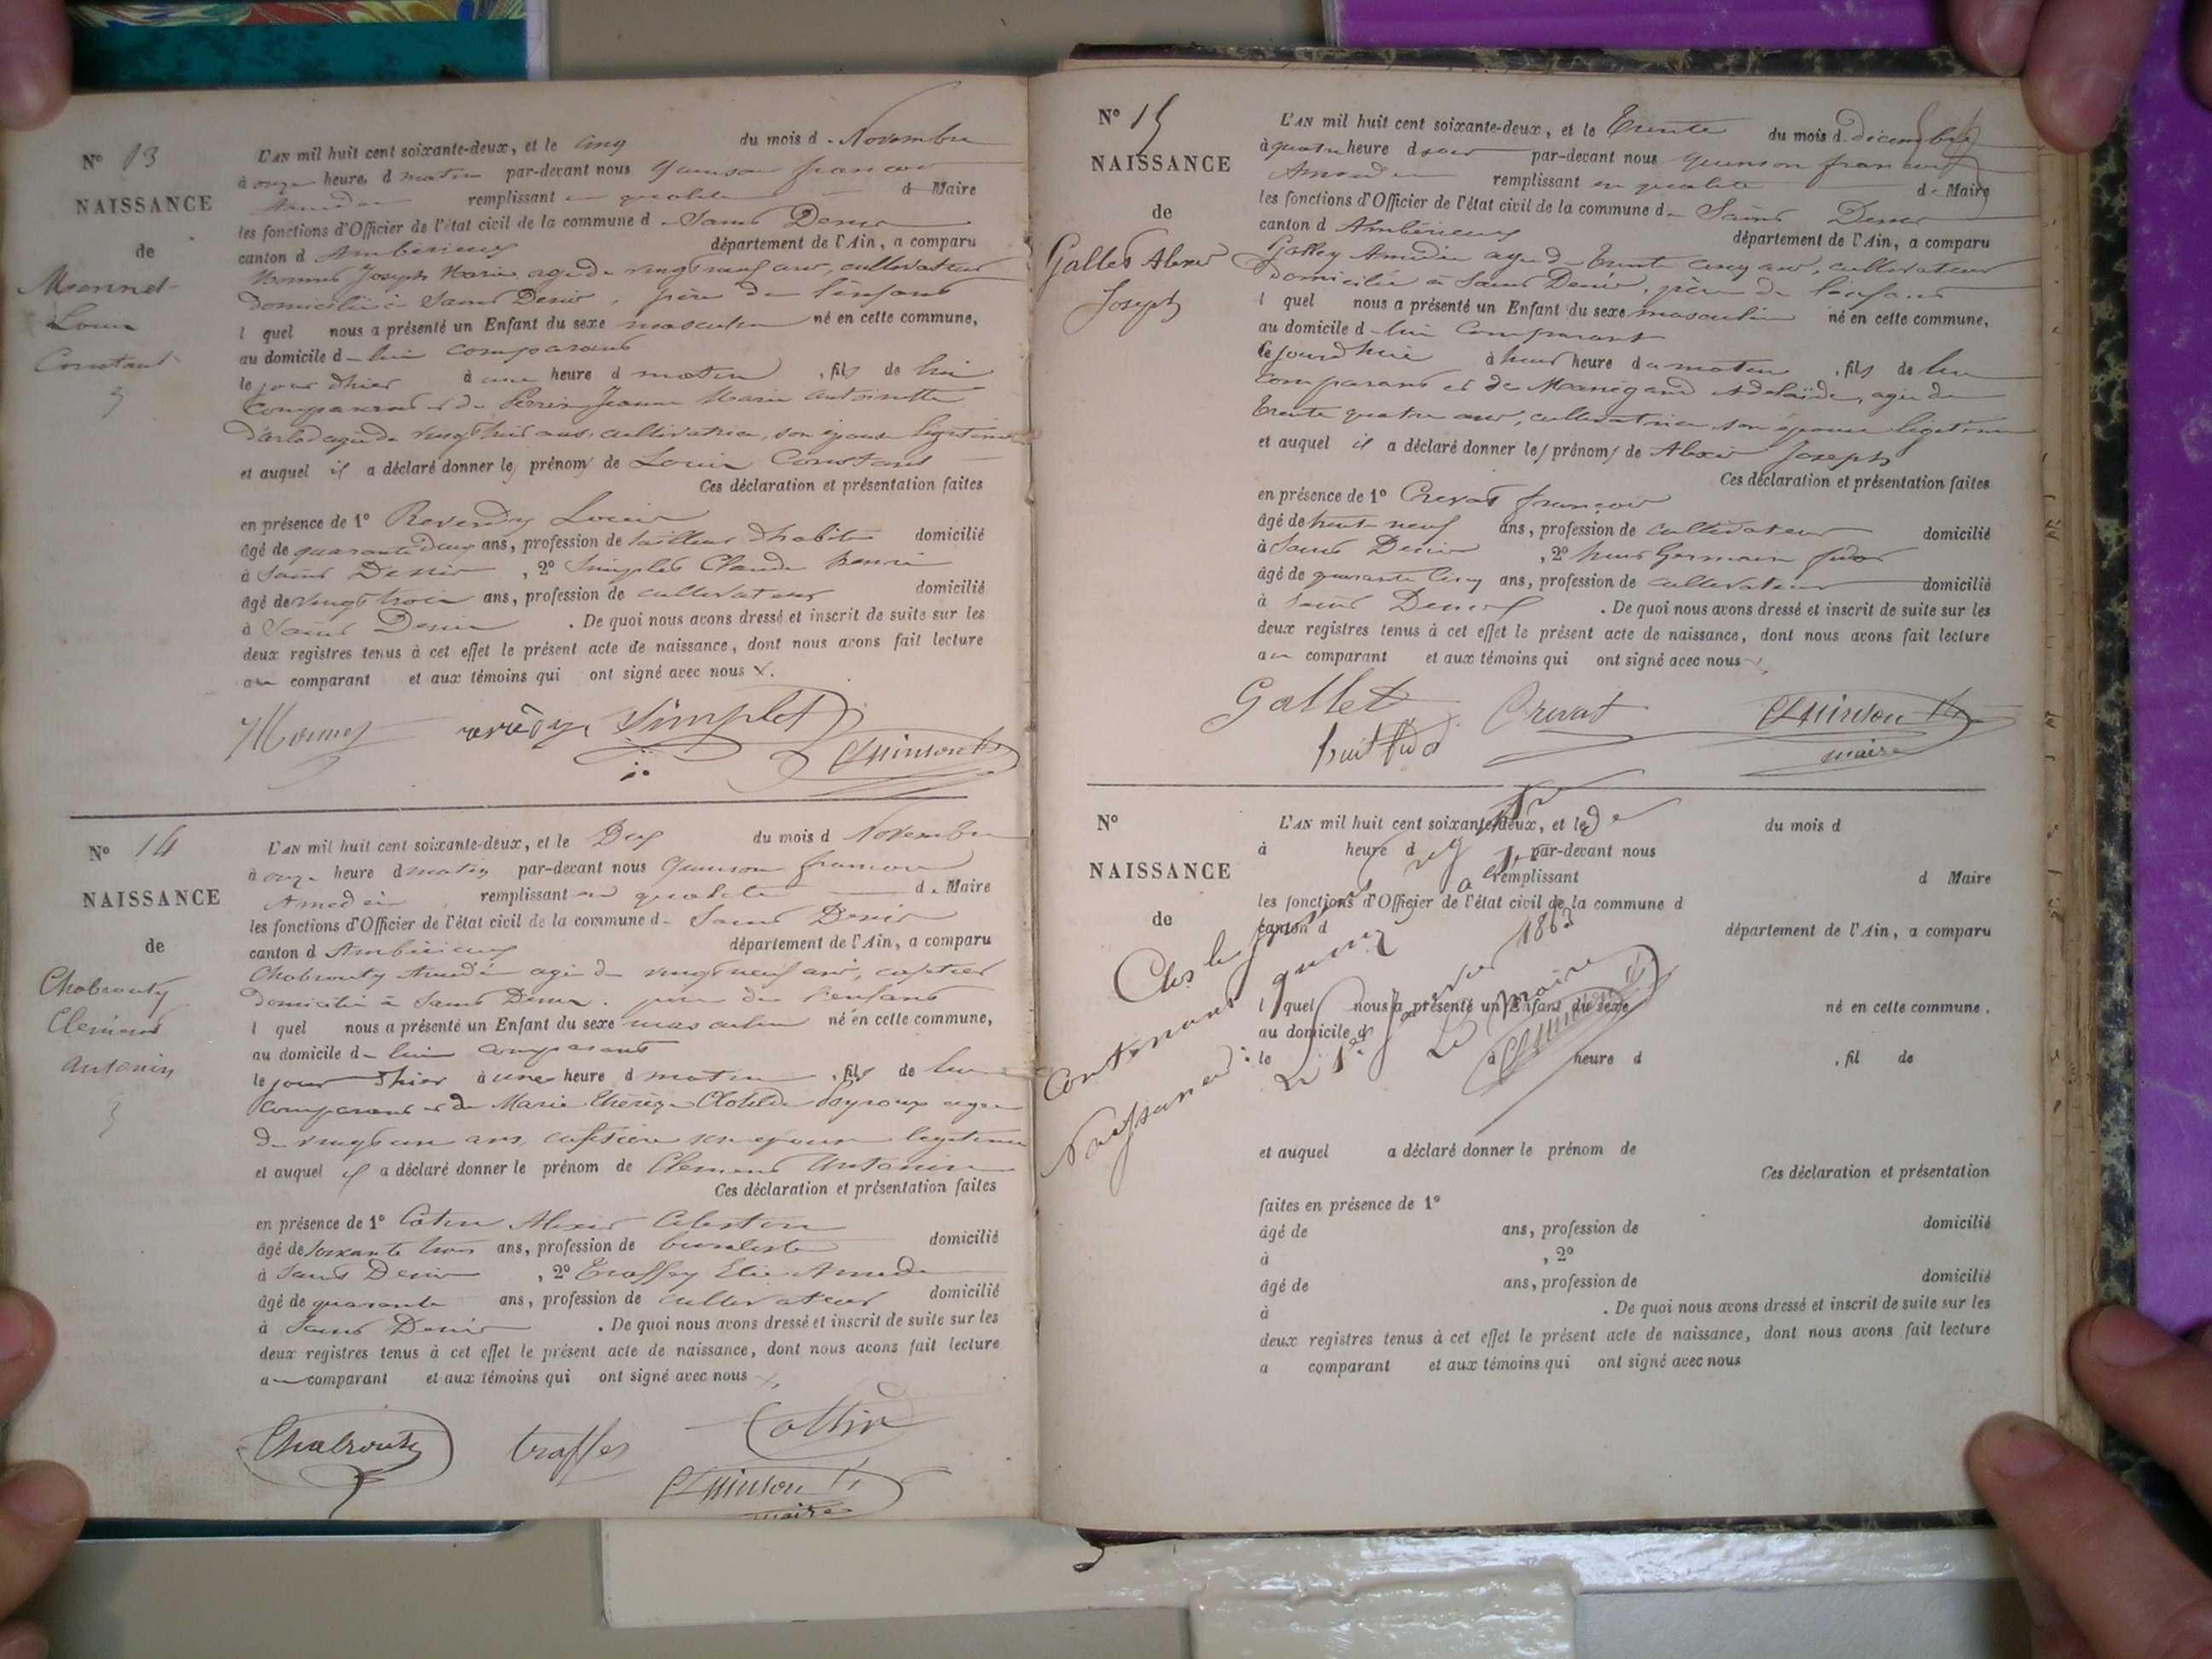 N° 13
NAISSANCE
de
Monnet
Louis
Constant
L'AN mil huit cent soixante-deux, et le cinq du mois d Novembre
à onze heure d matin par-devant nous Quinson françois
Amédée remplissant en qualité d Maire
les fonctions d'Officier de l'état civil de la commune d Saint Denis
canton d Ambérieux département de l'Ain, a comparu
Monnet Joseph Marie, agé de vingt neuf ans, cultivateur
domicilié à Saint Denis, père de l'enfant
l quel nous a présenté un Enfant du sexe masculin né en cette commune,
au domicile d lui comparant
le jour d'hier à une heure d matin , fils de lui
comparant et de Perrin Jeanne Marie antoinette
agée de vingt huit ans, cultivatrice, son épouse légitime
et auquel il a déclaré donner les prénoms de Louis Constant
Ces déclaration et présentation faites
en présence de 1° Reverdy Louis
âgé de quarante deux ans, profession de tailleur d'habits domicilié
à Saint Denis , 2° Simplet Claude henri
âgé de vingt trois ans, profession de cultivateur domicilié
à Saint Denis . De quoi nous avons dressé et inscrit de suite sur les
deux registres tenus à cet effet le présent acte de naissance, dont nous avons fait lecture
au comparant et aux témoins qui ont signé avec nous
Monnet Simplet
Quinson
N° 14
NAISSANCE
de
Chabrouty
Clément
Antonin
L'AN mil huit cent soixante-deux, et le Dix du mois d Novembre
à onze heure d matin par-devant nous Quinson françois
Amédée remplissant en qualité d Maire
les fonctions d'Officier de l'état civil de la commune d Saint Denis
canton d Ambérieux département de l'Ain, a comparu
Chabrouty Amédé agé de vingt neuf ans, cafetier
domicilié à Saint Denis. père de l'enfant
l quel nous a présenté un Enfant du sexe masculin né en cette commune,
au domicile d lui comparant
le jour d'hier à une heure d matin , fils de lui
comparant et de Marie Thérèze Clotilde agée
de vingt un ans, cafetière son épouse légitime
et auquel il a déclaré donner le prénom de Clément Antonin
Ces déclaration et présentation faites
en présence de 1° Cotin Alexis Celestin
âgé de soixante trois ans, profession de buraliste domicilié
à Saint Denis , 2° Traffey Elie Amédé
âgé de quarante ans, profession de cultivateur domicilié
à Saint Denis . De quoi nous avons dressé et inscrit de suite sur les
deux registres tenus à cet effet le présent acte de naissance, dont nous avons fait lecture
au comparant et aux témoins qui ont signé avec nous
Chabrouty traffet Cottin
Quinson
maire
N° 15
NAISSANCE
de
Gallet Alexis
Joseph
L'AN mil huit cent soixante-deux, et le Trente du mois d décembre
à quatre heure d soir par-devant nous Quinson françois
Amédée remplissant en qualité d Maire
les fonctions d'Officier de l'état civil de la commune d Saint Denis
canton d Ambérieux département de l'Ain, a comparu
Galley Amédée agé d Trente cinq ans, cultivateur
domicilié à Saint Denis, père de l'enfant
l quel nous a présenté un Enfant du sexe masculin né en cette commune,
au domicile d lui comparant
le jourd'hui à huit heure du matin , fils de lui
comparant et de Manigand Adelaïde, agée de
trente quatre ans, cultivatrice son épouse légitime
et auquel il a déclaré donner les prénoms de Alexis Joseph
Ces déclaration et présentation faites
en présence de 1° Crevat françois
âgé de trente neuf ans, profession de cultivateur domicilié
à Saint Denis , 2° huit Germain
âgé de quarante cinq ans, profession de cultivateur domicilié
à Saint Denis . De quoi nous avons dressé et inscrit de suite sur les
deux registres tenus à cet effet le présent acte de naissance, dont nous avons fait lecture
au comparant et aux témoins qui ont signé avec nous
Gallet Crevat Quinson
huit maire
N°
NAISSANCE
de
L'AN mil huit cent soixante-deux, et le du mois d
à heure d par-devant nous
remplissant d Maire
les fonctions d'Officier de l'état civil de la commune d
canton d département de l'Ain, a comparu
l quel nous a présenté un Enfant du sexe né en cette commune.
au domicile d
le à heure d , fil de
Clos le présent registre
contenant quinze
Naissances
le 1er Janvier 1863
Le Maire
Quinson
et auquel a déclaré donner le prénom de
Ces déclaration et présentation
faites en présence de 1°
âgé de ans, profession de domicilié
à , 2°
âgé de ans, profession de domicilié
à . De quoi nous avons dressé et inscrit de suite sur les
deux registres tenus à cet effet le présent acte de naissance, dont nous avons fait lecture
a comparant et aux témoins qui ont signé avec nous